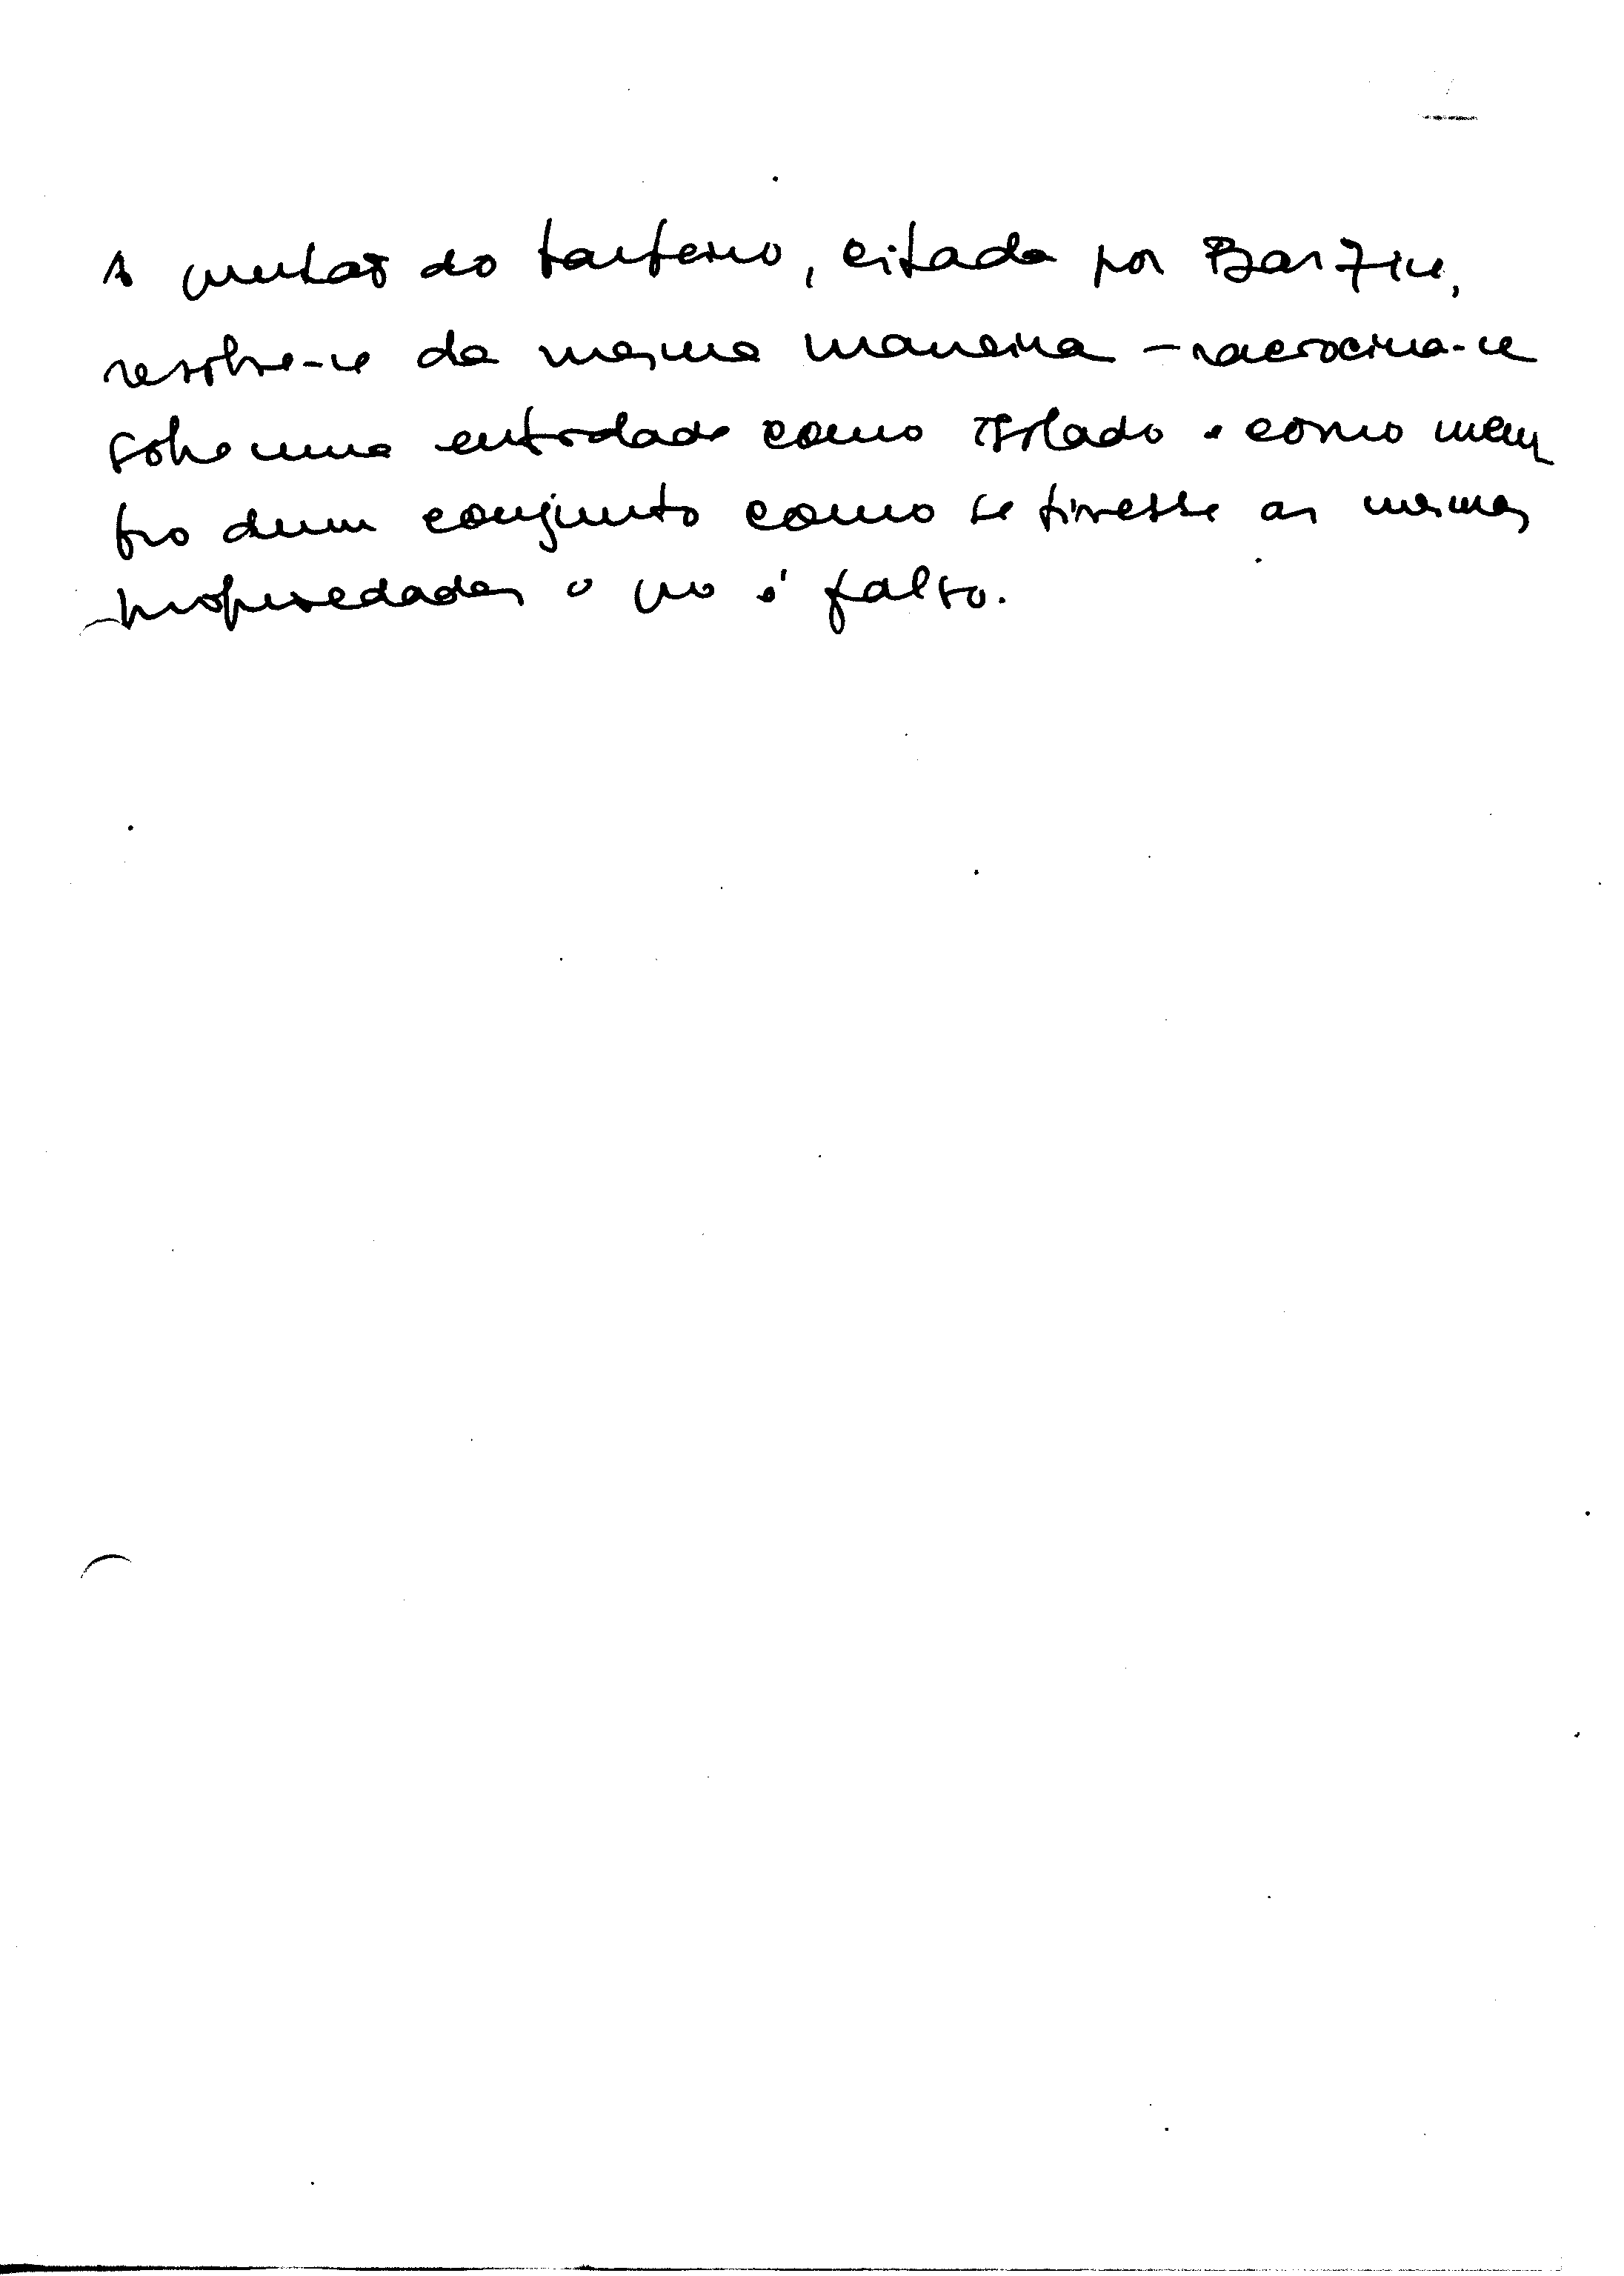 A questão do barbeiro, citada por Barzin,
resolve-se da mesma maneira – raciocina-se
sobre uma entidade como isolado e como mem
bro dum conjunto como se tivesse as mesmas
propriedades o que é falso.